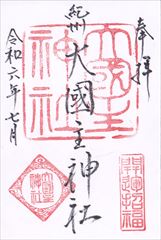 奉拝
紀州
大國主神社
令和六年七月
大国主
神社
開運招福
大國主
神社